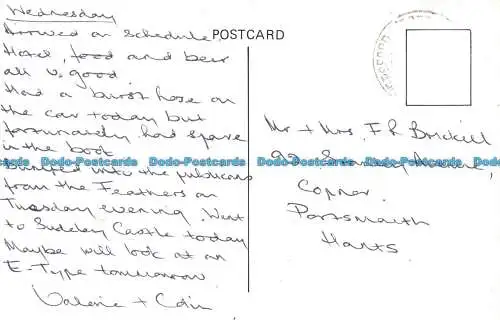 Wednesday
Arrived on schedule.
Hotel, food and beer
all v. good.
Had a burst hose on
the car today but
fortunately had spare
in the boot
Bumped into the publicans
from the Feathers on
Tuesday evening. Went
to Sudeley Castle today
Maybe will look at an
E-Type tommorrow
Valerie + Colin
POSTCARD
Mr + Mrs F R Brickell
Copnor
Portsmouth
Hants.
Dodo-Postcards Dodo-Postcards Dodo-Postcards Dodo-Postcards